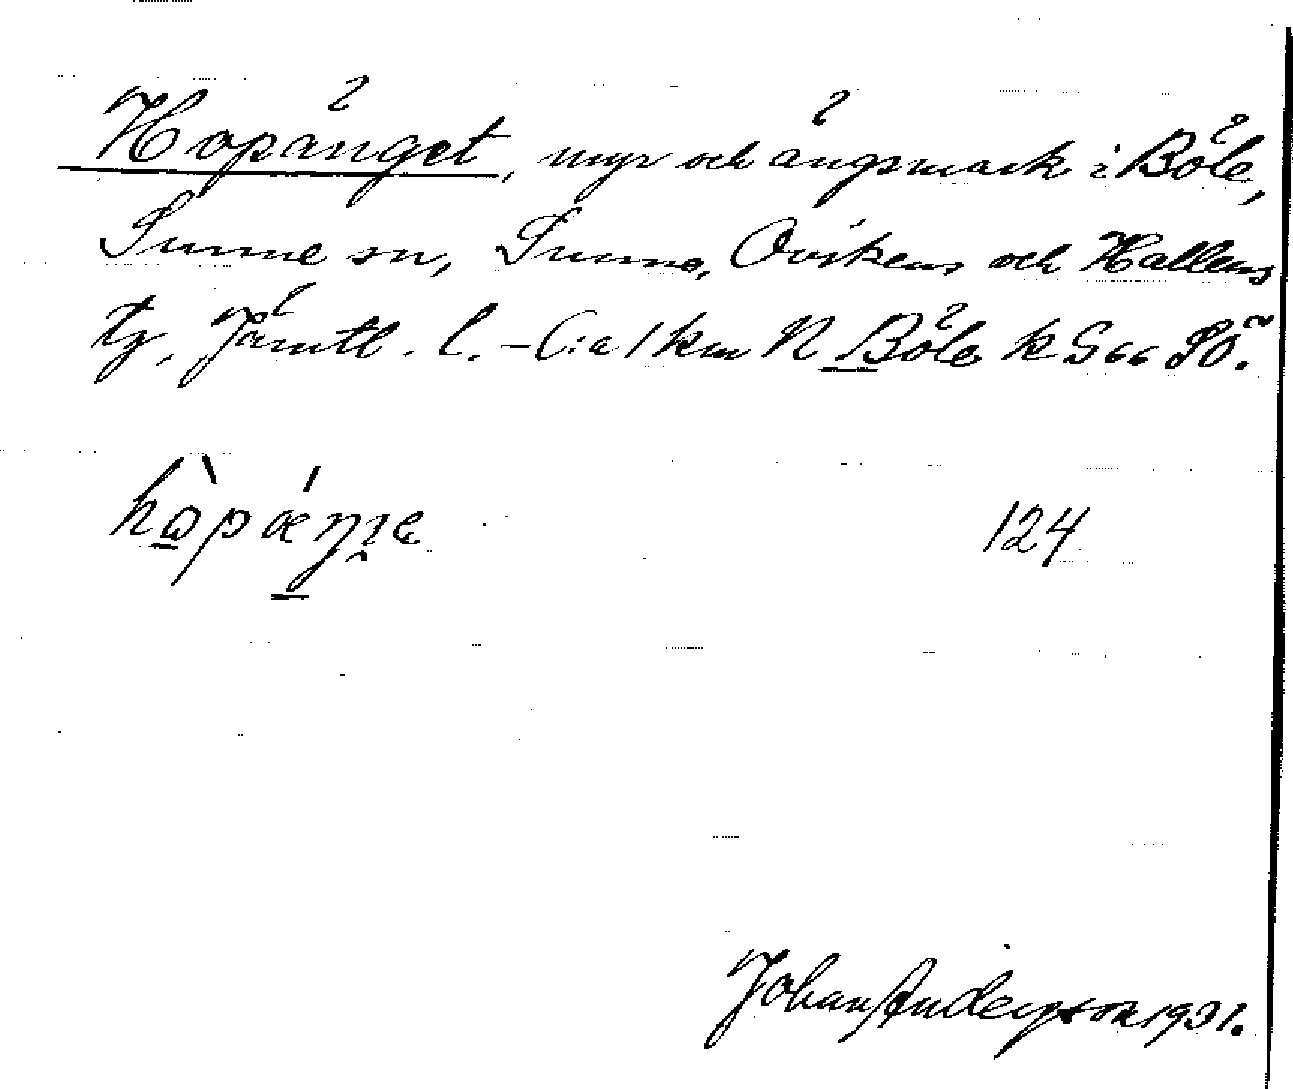 Hopänget, myr och ängsmark i Böle,
Sunne sn, Sunne, Ovikens och Hallens
tg, Jämtl. l. – C:a 1 km N Böle k G66 SÖ.
124
Johan Anderson 1931.